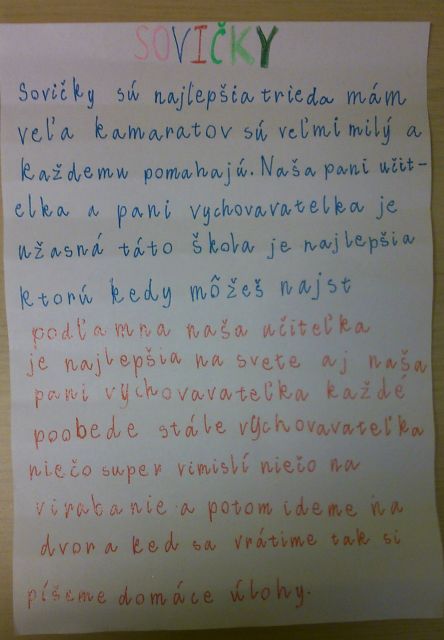 SOVIČKY
Sovičky sú najlepšia trieda mám
veľa kamaratov sú veľmi milý a
každemu pomahajú. Naša pani učit-
elka a pani vychovavatelka je
užasná táto škola je najlepšia
ktorú kedy môžeš najst
podľa mna naša učiteľka
je najlepšia na svete aj naša
pani vychovavateľka každé
poobede stále vychovavateľka
niečo super vimislí niečo na
virabanie a potom ideme na
dvor a ked sa vrátime tak si
píšeme domáce úlohy.